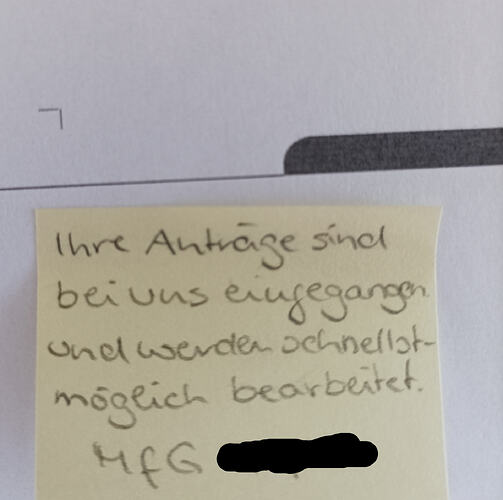 Ihre Anträge sind
bei uns eingegangen
und werden schnellst-
möglich bearbeitet.
MfG